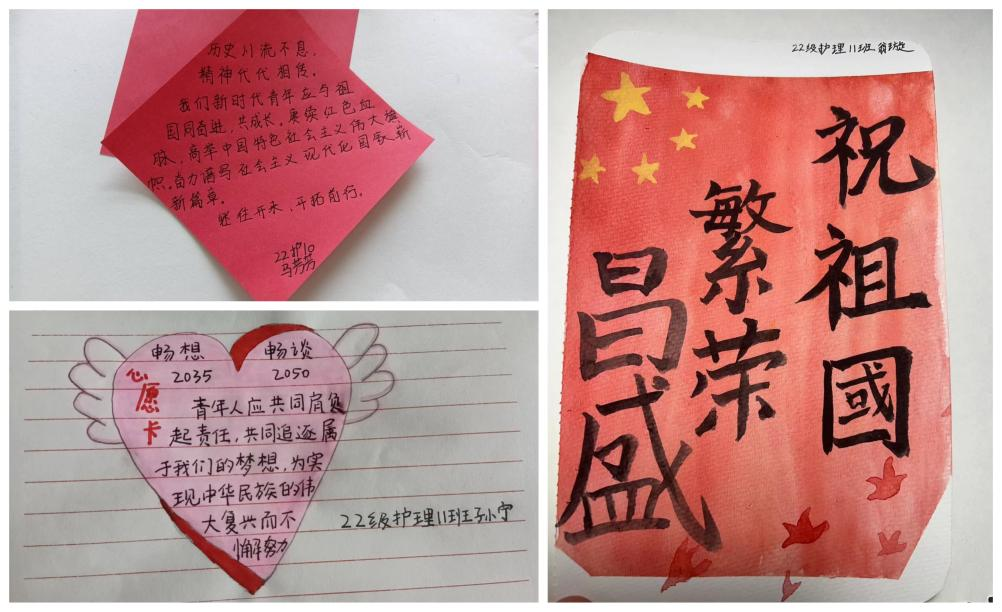 历史川流不息，
精神代代相传。
我们新时代青年应与祖
国同奋进，共成长。赓续红色血
脉，高举中国特色社会主义伟大旗
帜。奋力谱写社会主义现代化国家崭
新篇章。
继往开来，开拓前行。
22护10
马芳芳
畅想 畅谈
2035 2050
心愿卡
青年人应共同肩负
起责任，共同追逐属
于我们的梦想，为实
现中华民族的伟
大复兴而不
懈努力
22级护理11班孙宁
22级护理11班
祝祖國
繁荣
昌盛